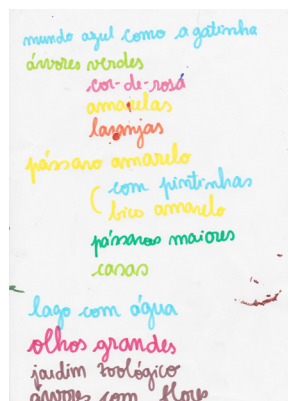 mundo azul como a gatinha
árvores verdes
cor-de-rosa
amarelas
laranjas
pássaro amarelo
com pintinhas
bico amarelo
pássaros maiores
casas
lago com água
olhos grandes
jardim zoológico
árvores com flores